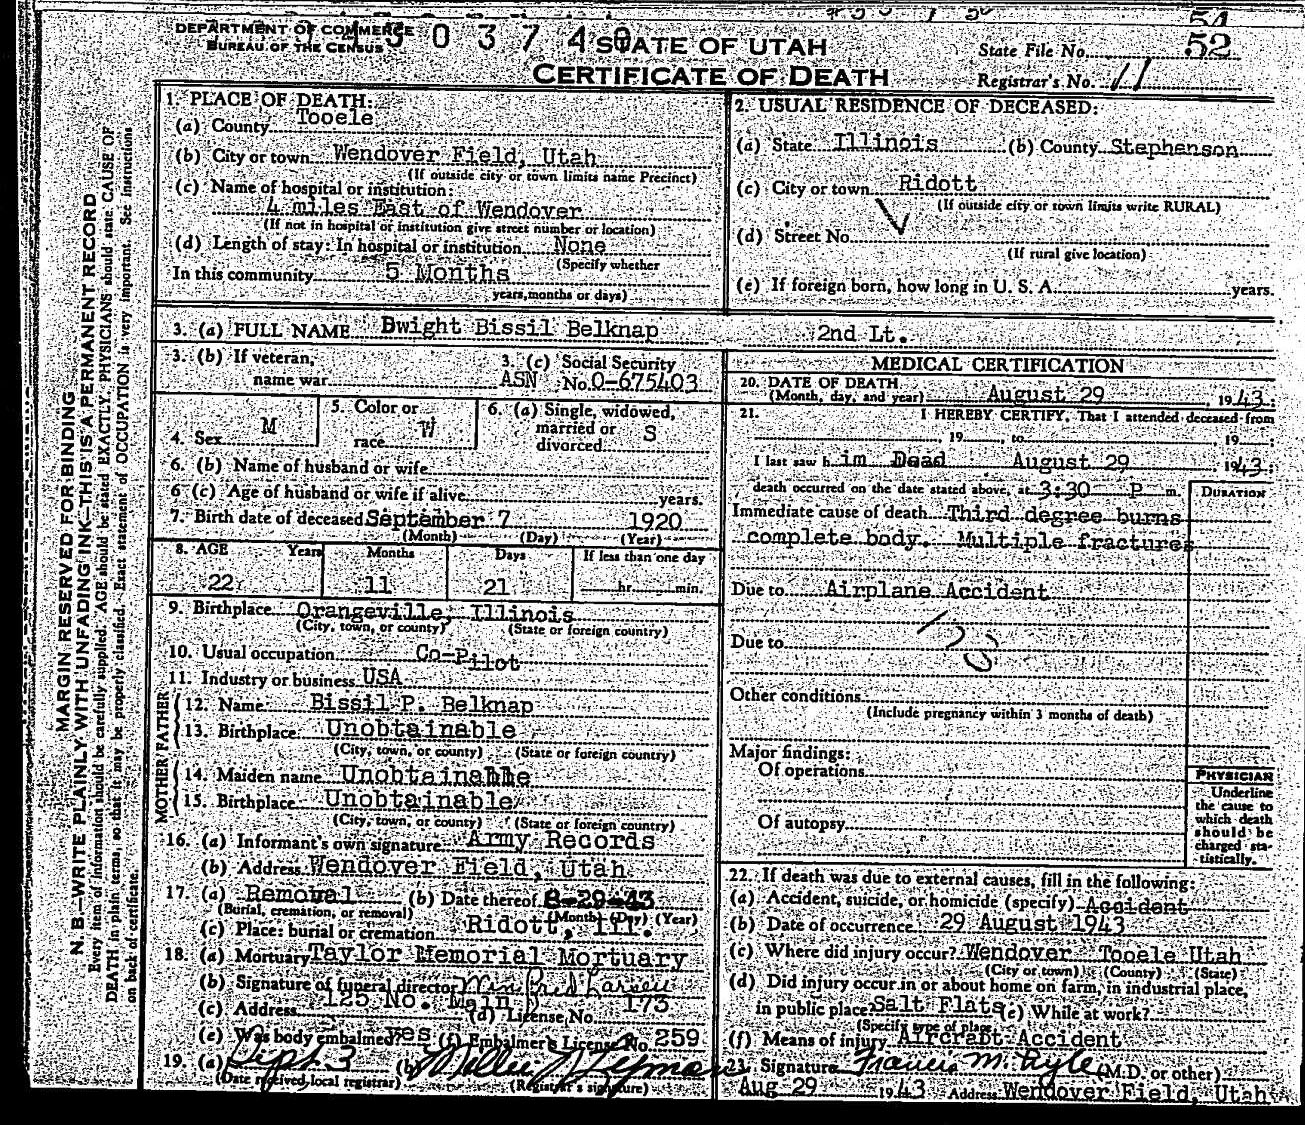 DEPARTMENT OF COMMERCE
BUREAU OF THE CENSUS
STATE OF UTAH
CERTIFICATE OF DEATH
State File No. 52
Registrar's No. 11
MARGIN RESERVED FOR BINDING
N. B.—WRITE PLAINLY, WITH UNFADING INK—THIS IS A PERMANENT RECORD
Every item of information should be carefully supplied. AGE should be stated EXACTLY. PHYSICIANS should state CAUSE OF
DEATH in plain terms, so that it may be properly classified. Exact statement of OCCUPATION is very important. See instructions
on back of certificate.
1. PLACE OF DEATH:
(a) County Tooele
(b) City or town Wendover Field, Utah
(If outside city or town limits name Precinct)
(c) Name of hospital or institution:
4 miles East of Wendover
(If not in hospital or institution give street number or location)
(d) Length of stay: In hospital or institution None
(Specify whether
In this community 5 Months
years, months or days)
2. USUAL RESIDENCE OF DECEASED:
(a) State Illinois (b) County Stephenson
(c) City or town Ridott
(If outside city or town limits write RURAL)
(d) Street No.
(If rural give location)
(e) If foreign born, how long in U. S. A. years.
3. (a) FULL NAME Dwight Bissil Belknap 2nd Lt.
3. (b) If veteran,
name war
3. (c) Social Security
ASN No. O-675403
4. Sex M
5. Color or
race W
6. (a) Single, widowed,
married or
divorced S
6. (b) Name of husband or wife
6 (c) Age of husband or wife if alive years.
7. Birth date of deceased September 7 1920
(Month) (Day) (Year)
8. AGE Years Months Days If less than one day
22 11 21 hr. min.
9. Birthplace Orangeville, Illinois
(City, town, or county) (State or foreign country)
10. Usual occupation Co-Pilot
11. Industry or business USA
FATHER
12. Name Bissil P. Belknap
13. Birthplace Unobtainable
(City, town, or county) (State or foreign country)
MOTHER
14. Maiden name Unobtainable
15. Birthplace Unobtainable
(City, town, or county) (State or foreign country)
16. (a) Informant's own signature Army Records
(b) Address Wendover Field, Utah
17. (a) Removal (b) Date thereof 8-29-43
(Burial, cremation, or removal) (Month) (Day) (Year)
(c) Place: burial or cremation Ridott, Ill.
18. (a) Mortuary Taylor Memorial Mortuary
(b) Signature of funeral director Winfred Larsen
(c) Address 125 No. Main (d) License No. 173
(e) Was body embalmed? yes (f) Embalmer's License No. 259
19. (a) Sept 3 (b)
(Date received local registrar) (Registrar's signature)
MEDICAL CERTIFICATION
20. DATE OF DEATH
(Month, day, and year) August 29, 1943.
21. I HEREBY CERTIFY, That I attended deceased from
, 19 , to , 19 .
I last saw him Dead August 29, 1943.
death occurred on the date stated above, at 3:30 P m.
DURATION
Immediate cause of death Third degree burns
complete body. Multiple fractures
Due to Airplane Accident
Due to
Other conditions
(Include pregnancy within 3 months of death)
Major findings:
Of operations
Of autopsy
PHYSICIAN
Underline
the cause to
which death
should be
charged sta-
tistically.
22. If death was due to external causes, fill in the following:
(a) Accident, suicide, or homicide (specify) Accident
(b) Date of occurrence 29 August 1943
(c) Where did injury occur? Wendover Tooele Utah
(City or town) (County) (State)
(d) Did injury occur in or about home on farm, in industrial place,
in public place? Salt Flats (e) While at work?
(Specify type of place)
(f) Means of injury Aircraft Accident
23. Signature Francis M. Kyle (M.D. or other)
Aug 29 1943 Address Wendover Field, Utah